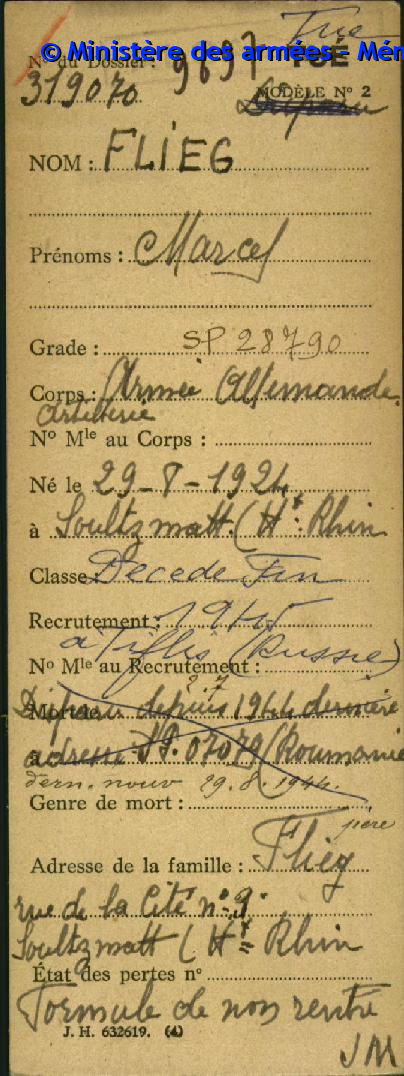 Tué
© Ministère des armées - Mém
N° du Dossier : 9697 TUÉ
319070
MODÈLE N° 2
Disparu
NOM : FLIEG
Prénoms : Marcel
Grade : SP 28790
Corps : Armée Allemande
Artillerie
N° Mle au Corps :
Né le 29-8-1924
à Soultzmatt (Ht-Rhin
Classe Décédé Fin
Recrutement : 1944
à Tiflis (Russie)
N° Mle au Recrutement :
Disparu depuis 1944 dernière
Mort le
à adresse S.P. 07079 (Roumanie
dern. nouv 29.8.1944.
Genre de mort :
père
Adresse de la famille : Flieg
rue de la Cité n° 9
Soultzmatt (Ht-Rhin
État des pertes n°
Formule de non rentré
J. H. 632619. (4)
JM